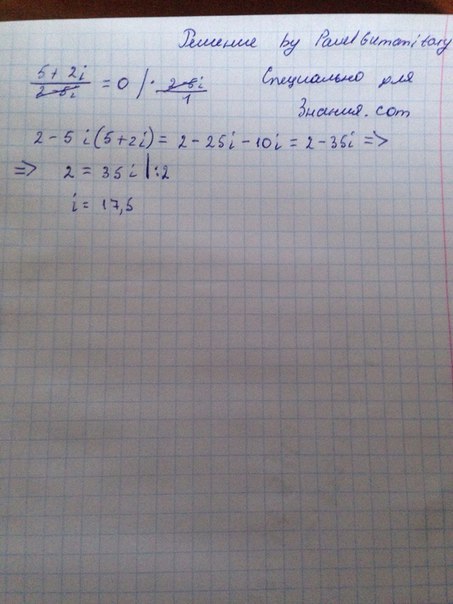 Решение by Pavelbumanitary
5 + 2i / 2 - 5i = 0 | · 2 - 5i / 1
Специально для
Знания.com
2 - 5 i (5 + 2i) = 2 - 25i - 10i = 2 - 35i =>
=> 2 = 35 i | :2
i = 17,5